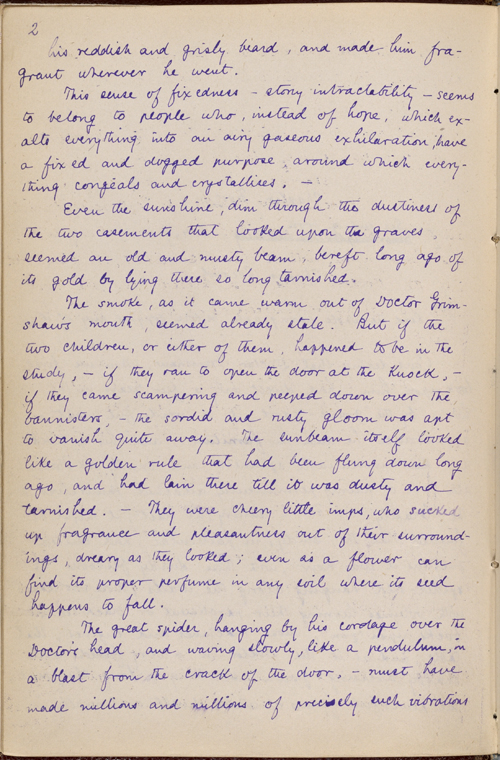 2
his reddish and grisly beard, and made him fra-
grant wherever he went.
This sense of fixedness - stony intractability - seems
to belong to people who, instead of hope, which ex-
alts everything into an airy gaseous exhilaration, have
a fixed and dogged purpose, around which every-
thing congeals and crystallises. -
Even the sunshine, dim through the dustiness of
the two casements that looked upon the graves,
seemed an old and musty beam, bereft long ago of
its gold by lying there so long tarnished.
The smoke, as it came warm out of Doctor Grim-
shaw's mouth, seemed already stale. But if the
two children, or either of them, happened to be in the
study, - if they ran to open the door at the knock, -
if they came scampering and peeped down over the
bannisters, - the sordid and rusty gloom was apt
to vanish quite away. The sunbeam itself looked
like a golden rule that had been flung down long
ago, and had lain there till it was dusty and
tarnished. - They were cheery little imps, who sucked
up fragrance and pleasantness out of their surround-
ings, dreary as they looked; even as a flower can
find its proper perfume in any soil where its seed
happens to fall.
The great spider, hanging by his cordage over the
Doctor's head, and waving slowly, like a pendulum, in
a blast from the crack of the door, - must have
made millions and millions of precisely such vibrations